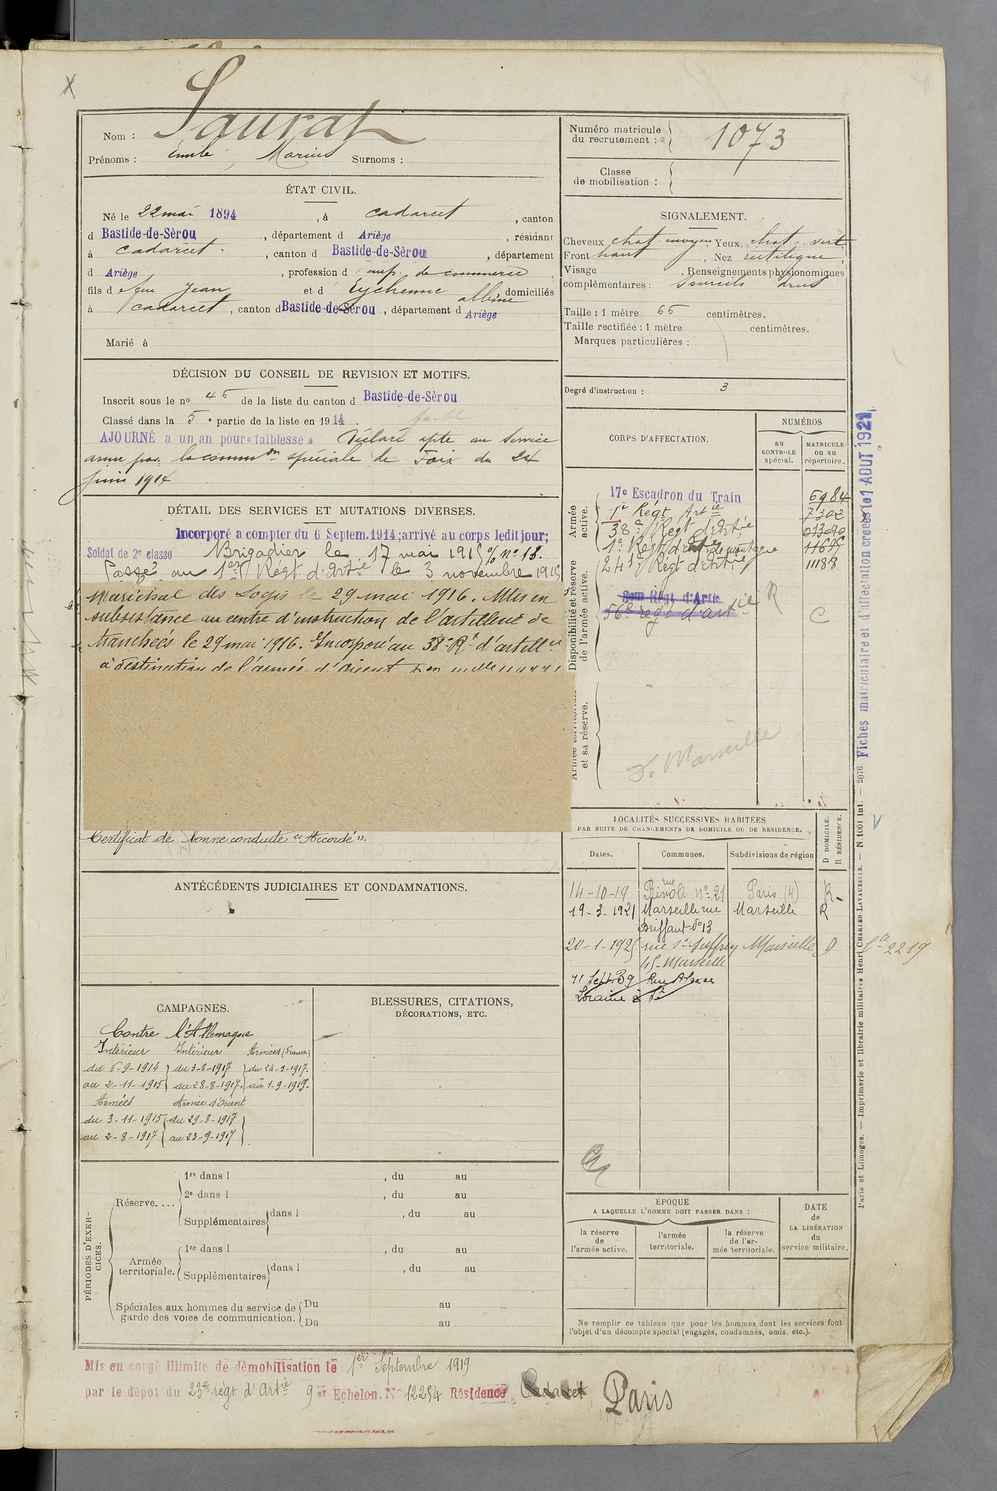 Nom : Saurat
Numéro matricule du recrutement : 1073
Prénoms : Emile, Marius Surnoms :
Classe de mobilisation :
ÉTAT CIVIL.
Né le 22 mai 1894, à Cadarcet, canton
d Bastide-de-Sérou, département d Ariège, résidant
à Cadarcet, canton d Bastide-de-Sérou, département
d Ariège, profession d' emp. de commerce
fils d feu Jean et d' Eychenne albine domiciliés
à Cadarcet, canton d Bastide-de-Sérou, département d Ariège
Marié à
SIGNALEMENT.
Cheveux chat moyen Yeux chat vert
Front haut, Nez rectiligne
Visage , Renseignements physionomiques
complémentaires : Sourcils drus
Taille : 1 mètre 66 centimètres.
Taille rectifiée : 1 mètre centimètres.
Marques particulières :
Degré d'instruction : 3
DÉCISION DU CONSEIL DE REVISION ET MOTIFS.
Inscrit sous le no 46 de la liste du canton d Bastide-de-Sérou
Classé dans la 5e partie de la liste en 1914.
AJOURNÉ a un an pour « faiblesse » Déclaré apte au service
armé par la common spéciale de Foix du 24
juin 1914
DÉTAIL DES SERVICES ET MUTATIONS DIVERSES.
Incorporé a compter du 6 Septem. 1914; arrivé au corps ledit jour;
Soldat de 2e classe Brigadier le 17 mai 1915 % no 18.
Passé au 1er Régt d'Artie le 3 novembre 1915
Maréchal des Logis le 29 mai 1916. Mis en
subsistance au centre d'instruction de l'artillerie de
tranchées le 29 mai 1916. Incorporé au 38e Rt d'artelle
à destination de l'armée d'Orient
Certificat de bonne conduite "Accordé".
CORPS D'AFFECTATION.
NUMÉROS
AU CONTROLE spécial.
MATRICULE OU AU répertoire.
Armée active.
17e Escadron du Train 6984
1er Régt Artie 7302
38e Régt d'Artie
1er Régt d'artie de montagne
24e Régt d'Artie 11183
Disponibilité et réserve de l'armée active.
56e régt d'artie
R
C
Armée territoriale et sa réserve.
S. Marseille
LOCALITÉS SUCCESSIVES HABITÉES
PAR SUITE DE CHANGEMENTS DE DOMICILE OU DE RESIDENCE.
Dates. Communes. Subdivisions de région D DOMICILE. R RÉSIDENCE.
14-10-19 rue Rivoli no 21 Paris (4) R
19-3-1921 Marseille rue Marseille R
Briffaut no 13
20-1-1925 rue St Suffrey Marseille D
45 Marseille
11 Septbre 39 Rue Alsace
Loraine
ANTÉCÉDENTS JUDICIAIRES ET CONDAMNATIONS.
CAMPAGNES.
Contre l'Allemagne
Intérieur Intérieur Armées (France)
du 6-9-1914 du 3-8-1917 du 24-9-1917.
au 2-11-1915 au 28-8-1917. au 1-9-1919.
Armées Armée d'Orient
du 3-11-1915 du 29-8-1917
au 2-8-1917 au 23-9-1917
BLESSURES, CITATIONS,
DÉCORATIONS, ETC.
PÉRIODES D'EXERCICES.
Réserve....
1re dans l , du au
2e dans l , du au
Supplémentaires dans l , du au
Armée territoriale.
1re dans l , du au
Supplémentaires dans l , du au
Spéciales aux hommes du service de garde des voies de communication.
Du au
Du au
ÉPOQUE
A LAQUELLE L'HOMME DOIT PASSER DANS :
la réserve de l'armée active.
l'armée territoriale.
la réserve de l'armée territoriale.
DATE de LA LIBÉRATION du service militaire.
Ne remplir ce tableau que pour les hommes dont les services font
l'objet d'un décompte spécial (engagés, condamnés, omis, etc.).
Mis en congé illimité de démobilisation le 1er Septembre 1919
par le dépôt du 23e régt d'Artie 9er Echelon. No 12254 Résidence Cadarcet Paris
Fiches matriculaire et d'affectation créées le 1 AOUT 1921
Paris et Limoges. — Imprimerie et librairie militaires Henri CHARLES-LAVAUZELLE. — N. 1001 int. — 2076.
2219